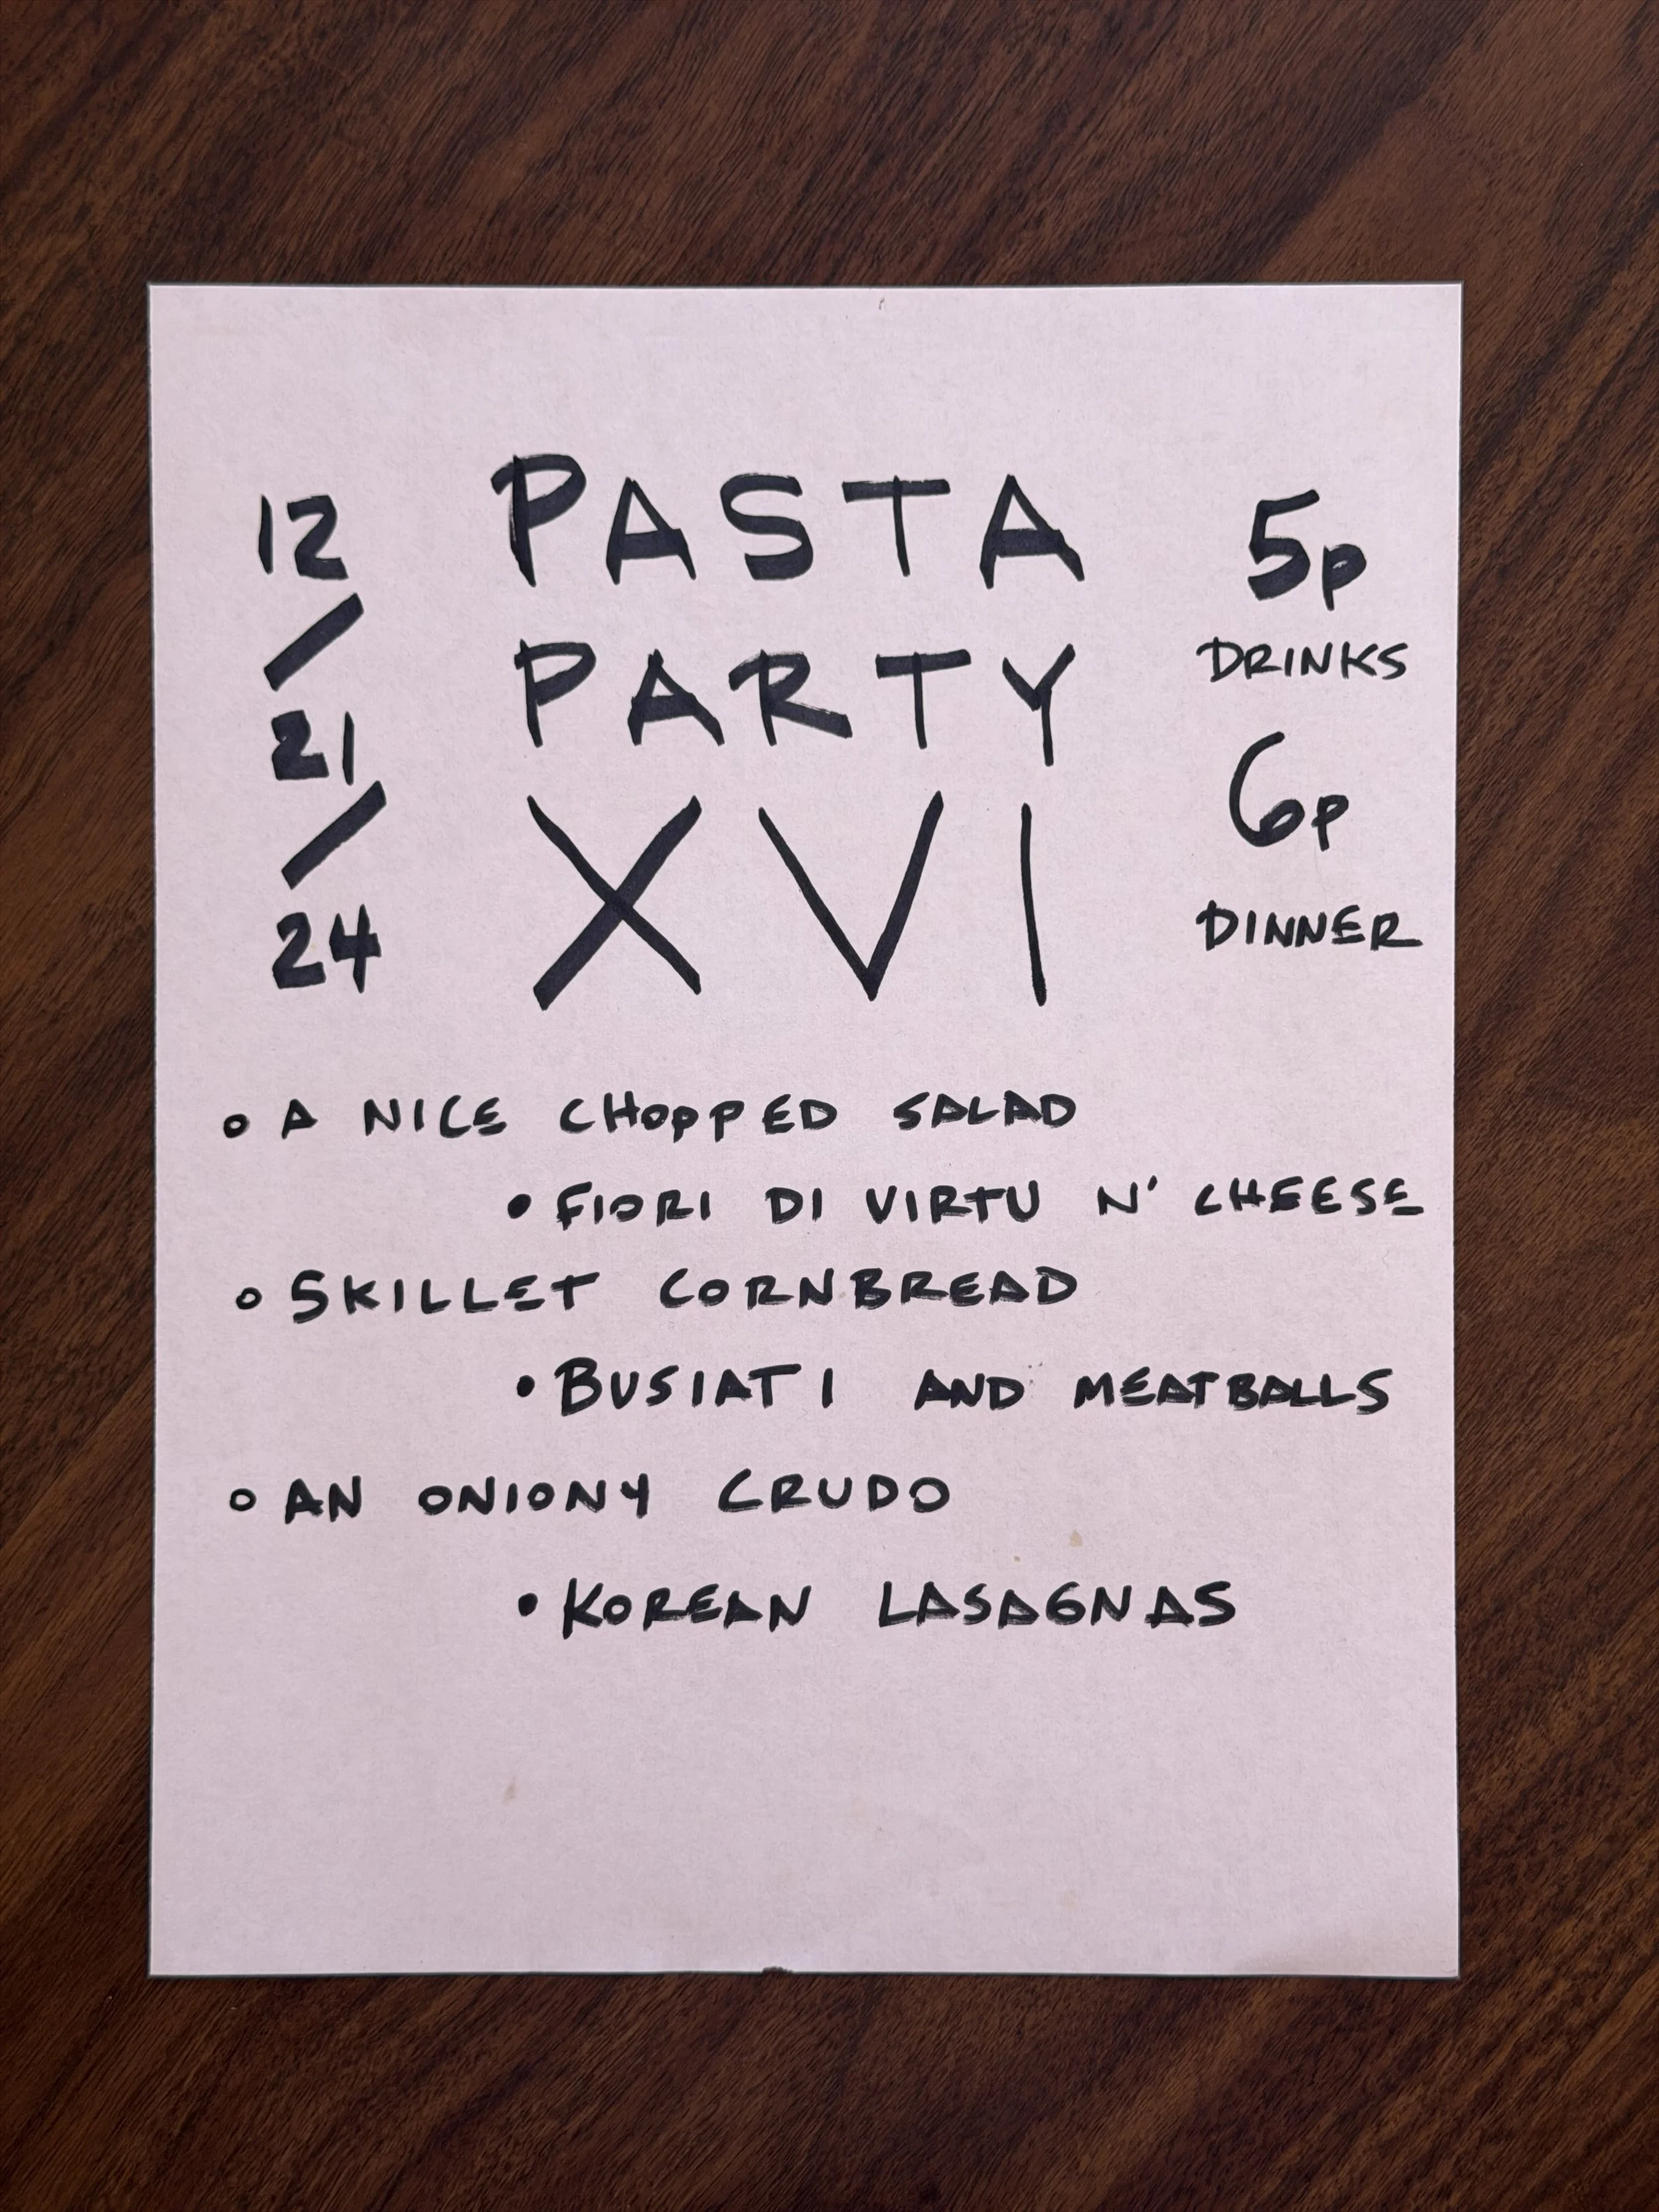 12
/
21
/
24
PASTA
PARTY
XVI
5p
DRINKS
6p
DINNER
◦ A NICE CHOPPED SALAD
• FIORI DI VIRTU N' CHEESE
◦ SKILLET CORNBREAD
• BUSIATI AND MEATBALLS
◦ AN ONIONY CRUDO
• KOREAN LASAGNAS